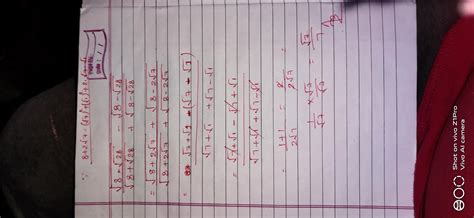 ∵ 8+2√7 = (√7)²+(√1)²+2·√7·√1
√8+√28 - √8-√28
√8+√28 + √8-√28
= √8+2√7 - √8-2√7
√8+2√7 + √8-2√7
= √7+√1 - (√7-√1)
√7+√1 + √7-√1
= √7+√1-√7+√1
√7+√1+√7-√1
= 1+1 = 2 =
2√7 2√7
1 × √7 = √7
√7 √7 7
Shot on vivo Z1Pro
Vivo AI camera